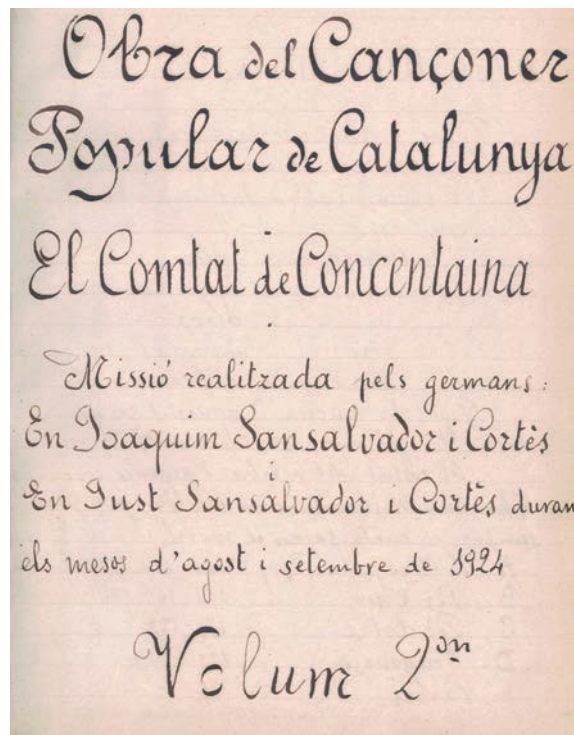 Obra del Cançoner
Popular de Catalunya
El Comtat de Concentaina
Missió realitzada pels germans:
En Joaquim Sansalvador i Cortès
i
En Just Sansalvador i Cortès duran
els mesos d'agost i setembre de 1924
Volum 2on